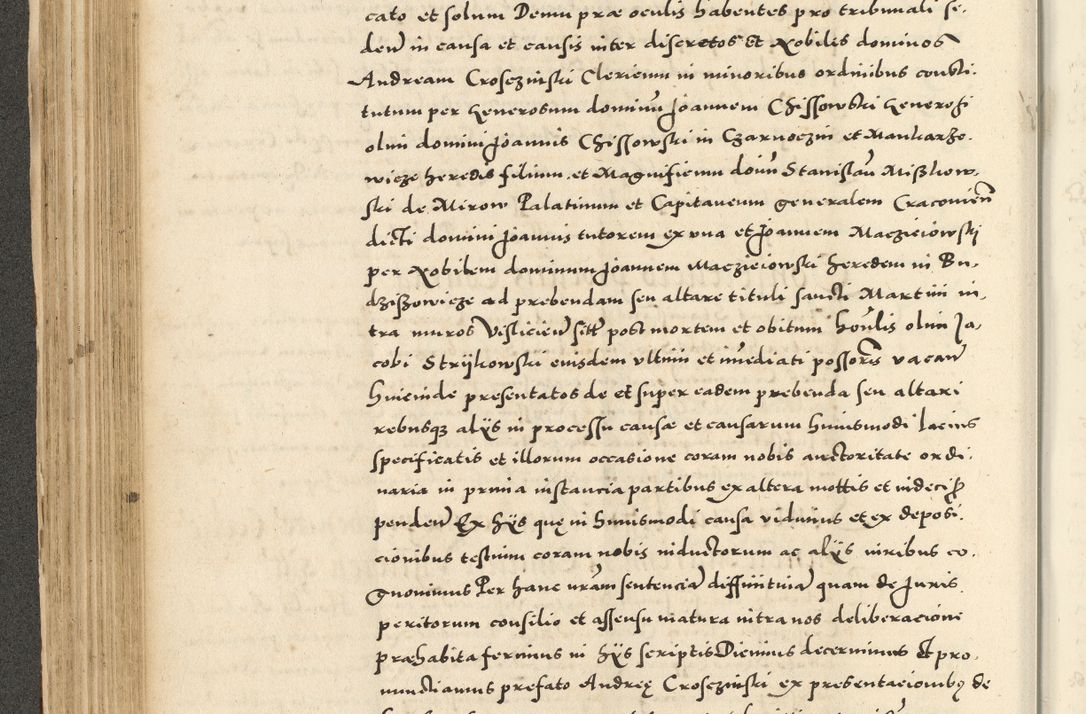 cato et solum Deum præ oculis habentes pro tribunali se-
deñ in causa et causis inter discretos et Nobiles dominos
Andream Crosczinski Clericum in minoribus ordinibus consti-
tutum per Generosum dominũ Joannem Chissowski Generosi
olim domini Joannis Chissowski in Czarnoczin et Maukarze-
wicze heredis filium et Magnificum doñum Stanislaũ Miszkow-
ski de Mirow Palatinum et Capitaneum generalem Cracovieñ
dicti domini Joannis tutorem ex una et Joannem Maczieiowski
per Nobilem dominum Joannem Maczieiowski heredem in Bu-
dziszowicze ad prebendam seu altare tituli sancti Martini in-
tra muros Vislicieñ sitt̃ post mortem et obitum hoñlis olim Ja-
cobi Strijkowski eiusdem ultimi et im̃ediati possoris vacañ
hincinde presentatos de et super eadem prebenda seu altari
rebusqz alÿs in processu causæ et causarum huiusmodi lacius
specificatis et illorum occasione coram nobis auctoritate ordi-
naria in prima instancia partibus ex altera mottis et indeciss̃
pendeñ Ex hÿs quę in huiusmodi causa vidimus et ex deposi-
cionibus testium coram nobis inductorum ac alÿs iuribus co-
gnovimus Per hanc nr̃am sentenciã diffinitivã quam de Juris
peritorum consilio et assensu matura intra nos deliberacione
præhabita ferimus in hÿs scriptis Dicimus decernimus et pro-
nunctiamus prefato Andreę Crosczinski ex presentacionibꝰ de